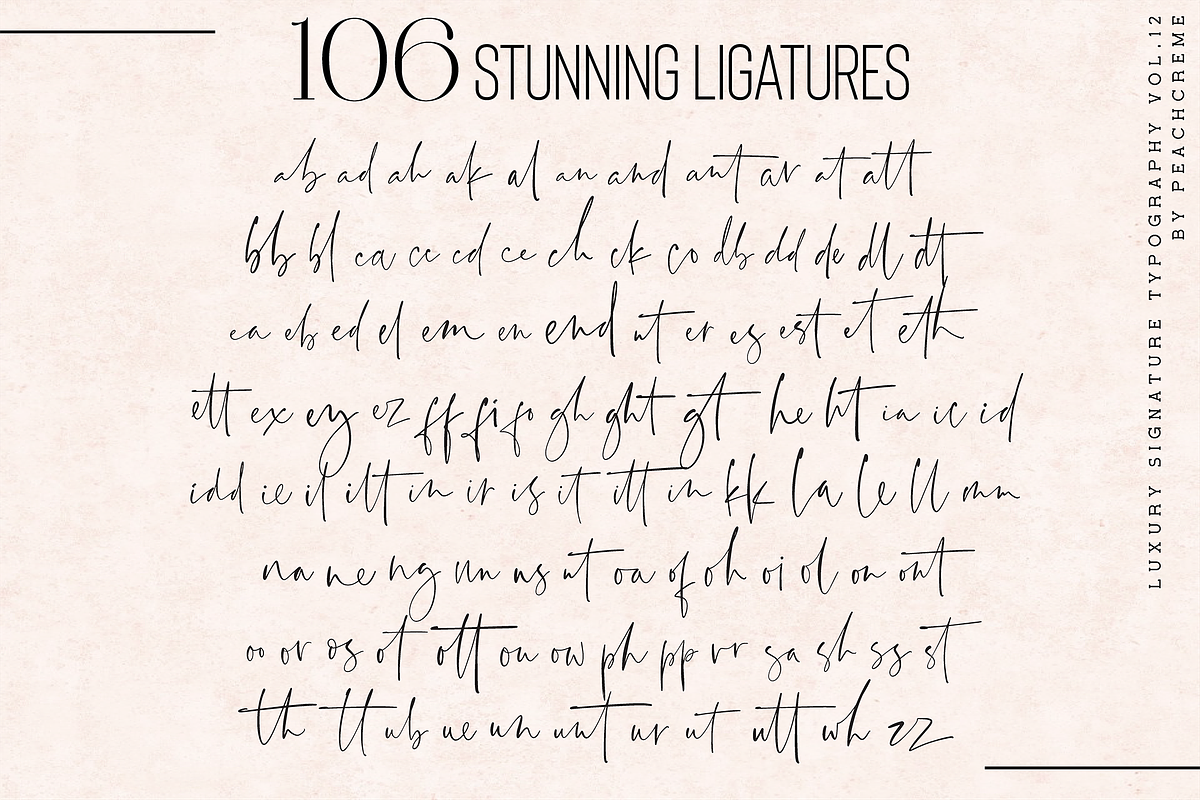 106 STUNNING LIGATURES
ab ad ah ak al an and ant ar at att
bb bl ca cc cd ce ch ck co db dd de dl dt
ea eb ed el em en end nt er es est et eth
ett ex ey ez ff fi fo gh ght gt he ht ia ic id
idd ie il ilt in ir is it itt in kk la le ll mm
na ne ng nn ns nt oa of oh oi ol on ont
oo or os ot ott ou ow ph pp rr sa sh ss st
th tt ub ue un unt ur ut utt wh zz
LUXURY SIGNATURE TYPOGRAPHY VOL.12
BY PEACHCREME